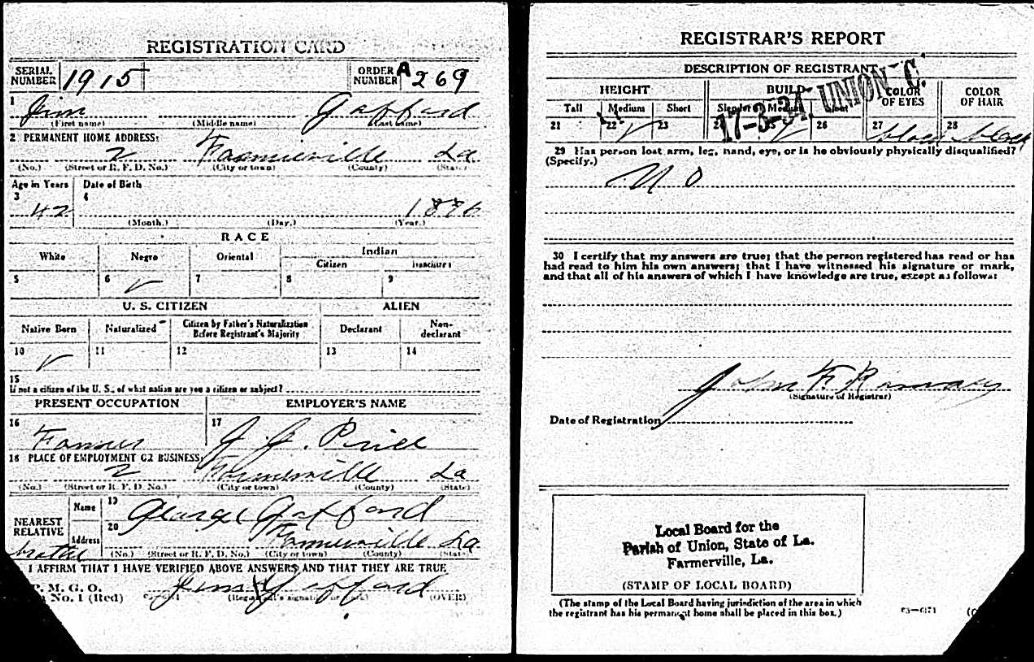 REGISTRATION CARD
SERIAL NUMBER 1915 ORDER NUMBER A 269
1 Jim Gafford
(First name) (Middle name) (Last name)
2 PERMANENT HOME ADDRESS:
2 Farmerville La
(No.) (Street or R. F. D. No.) (City or town) (County) (State)
Age in Years Date of Birth
3 42 4 1876
(Month.) (Day.) (Year.)
RACE
White Negro Oriental Indian
Citizen Noncitizen
5 6 ✓ 7 8 9
U. S. CITIZEN ALIEN
Native Born Naturalized Citizen by Father's Naturalization Before Registrant's Majority Declarant Non-declarant
10 ✓ 11 12 13 14
15
If not a citizen of the U. S., of what nation are you a citizen or subject?
PRESENT OCCUPATION EMPLOYER'S NAME
16 Farmer 17 J. J. Price
18 PLACE OF EMPLOYMENT OR BUSINESS:
2 Farmerville La
(No.) (Street or R. F. D. No.) (City or town) (County) (State)
NEAREST RELATIVE Name 19 George Gafford
Address 20 Farmerville La
brother (No.) (Street or R. F. D. No.) (City or town) (County) (State)
I AFFIRM THAT I HAVE VERIFIED ABOVE ANSWERS AND THAT THEY ARE TRUE
P. M. G. O.
No. 1 (Red) Jim Gafford (OVER)
REGISTRAR'S REPORT
DESCRIPTION OF REGISTRANT
HEIGHT BUILD COLOR OF EYES COLOR OF HAIR
Tall Medium Short Slender Medium Stout
21 22 ✓ 23 24 25 ✓ 26 27 black 28 black
17-3-34 UNION C.
29 Has person lost arm, leg, hand, eye, or is he obviously physically disqualified?
(Specify.)
No
30 I certify that my answers are true; that the person registered has read or has
had read to him his own answers; that I have witnessed his signature or mark,
and that all of his answers of which I have knowledge are true, except as follows:
John F. Ramsey
(Signature of Registrar)
Date of Registration
Local Board for the
Parish of Union, State of La.
Farmerville, La.
(STAMP OF LOCAL BOARD)
(The stamp of the Local Board having jurisdiction of the area in which
the registrant has his permanent home shall be placed in this box.)